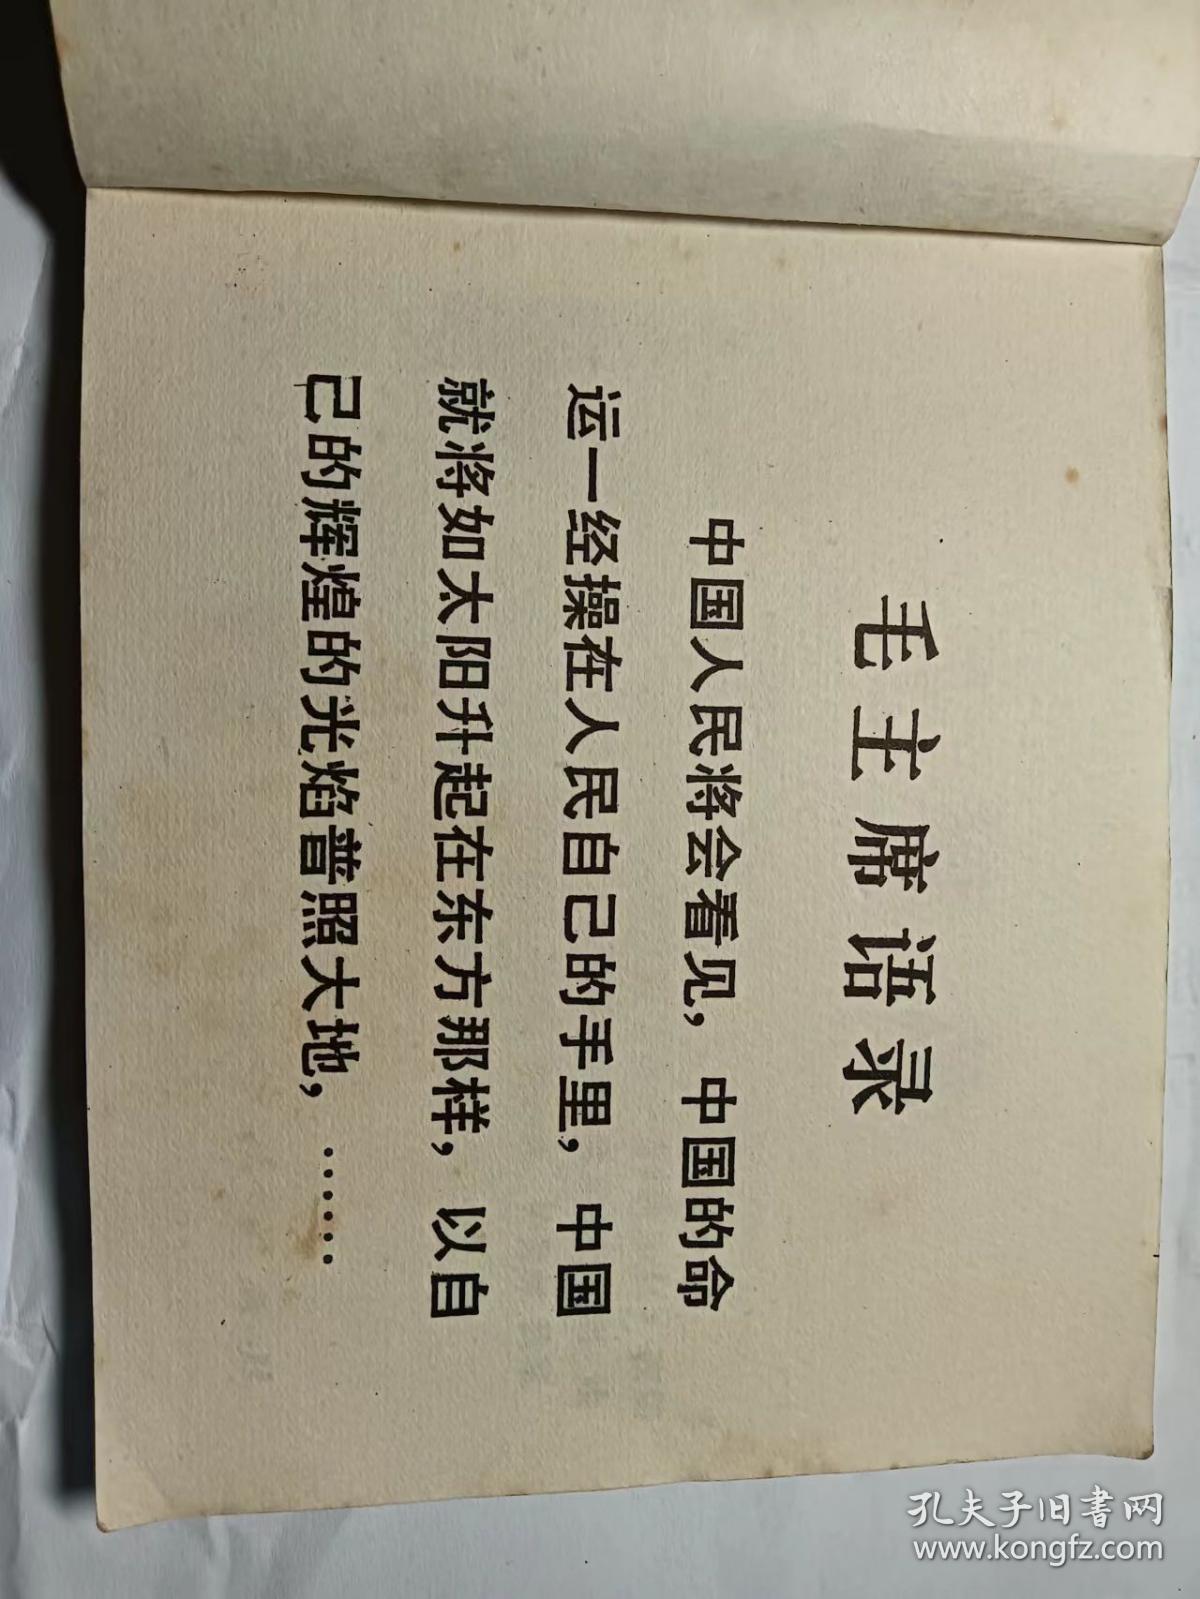 毛主席语录
中国人民将会看见，中国的命
运一经操在人民自己的手里，中国
就将如太阳升起在东方那样，以自
己的辉煌的光焰普照大地，……
孔夫子旧书网
www.kongfz.com